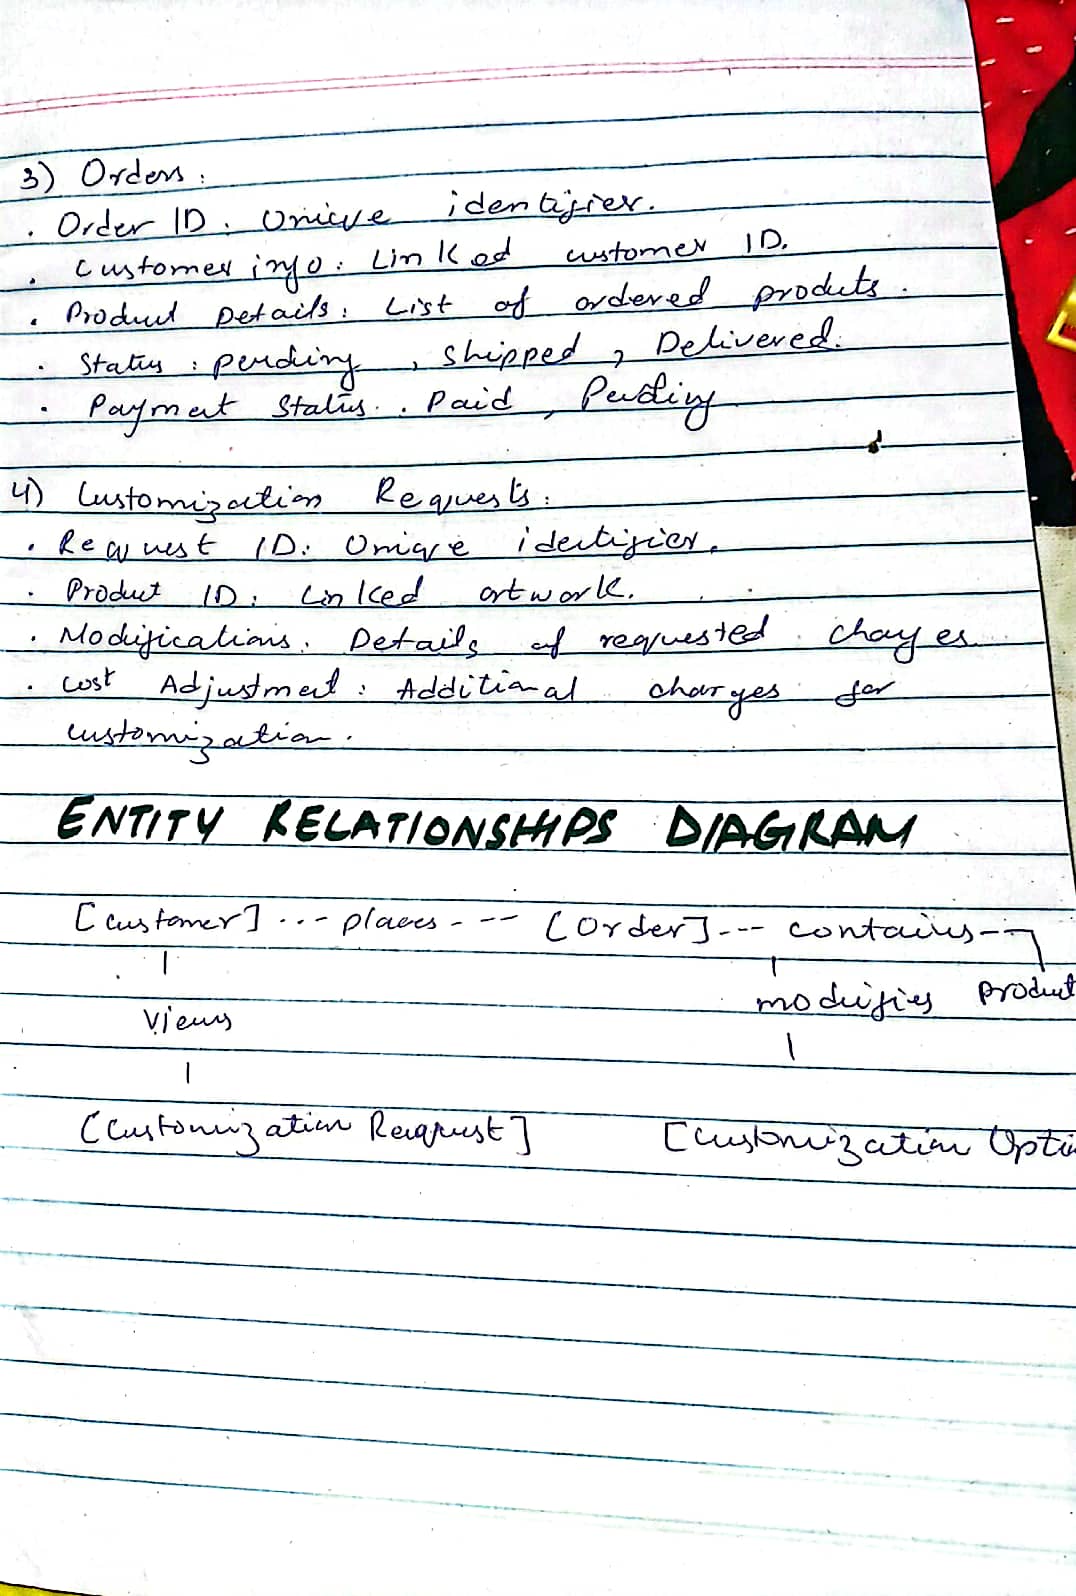 3) Orders :
. Order ID : Unique identifier.
. Customer info : Linked customer ID.
. Product Details : List of ordered produts .
. Status : pending , Shipped , Delivered.
. Payment Status . . Paid , Pending
4) Customization Requests :
. Request ID : Unique identifier.
. Product ID : Linked artwork.
. Modifications : Details of requested changes
. Cost Adjustment : Additional charges for
customization .
ENTITY RELATIONSHIPS DIAGRAM
[Customer] ... - places - -- [Order] --- contains --
modifies product
Views
[Customization Request] [Customization Opti